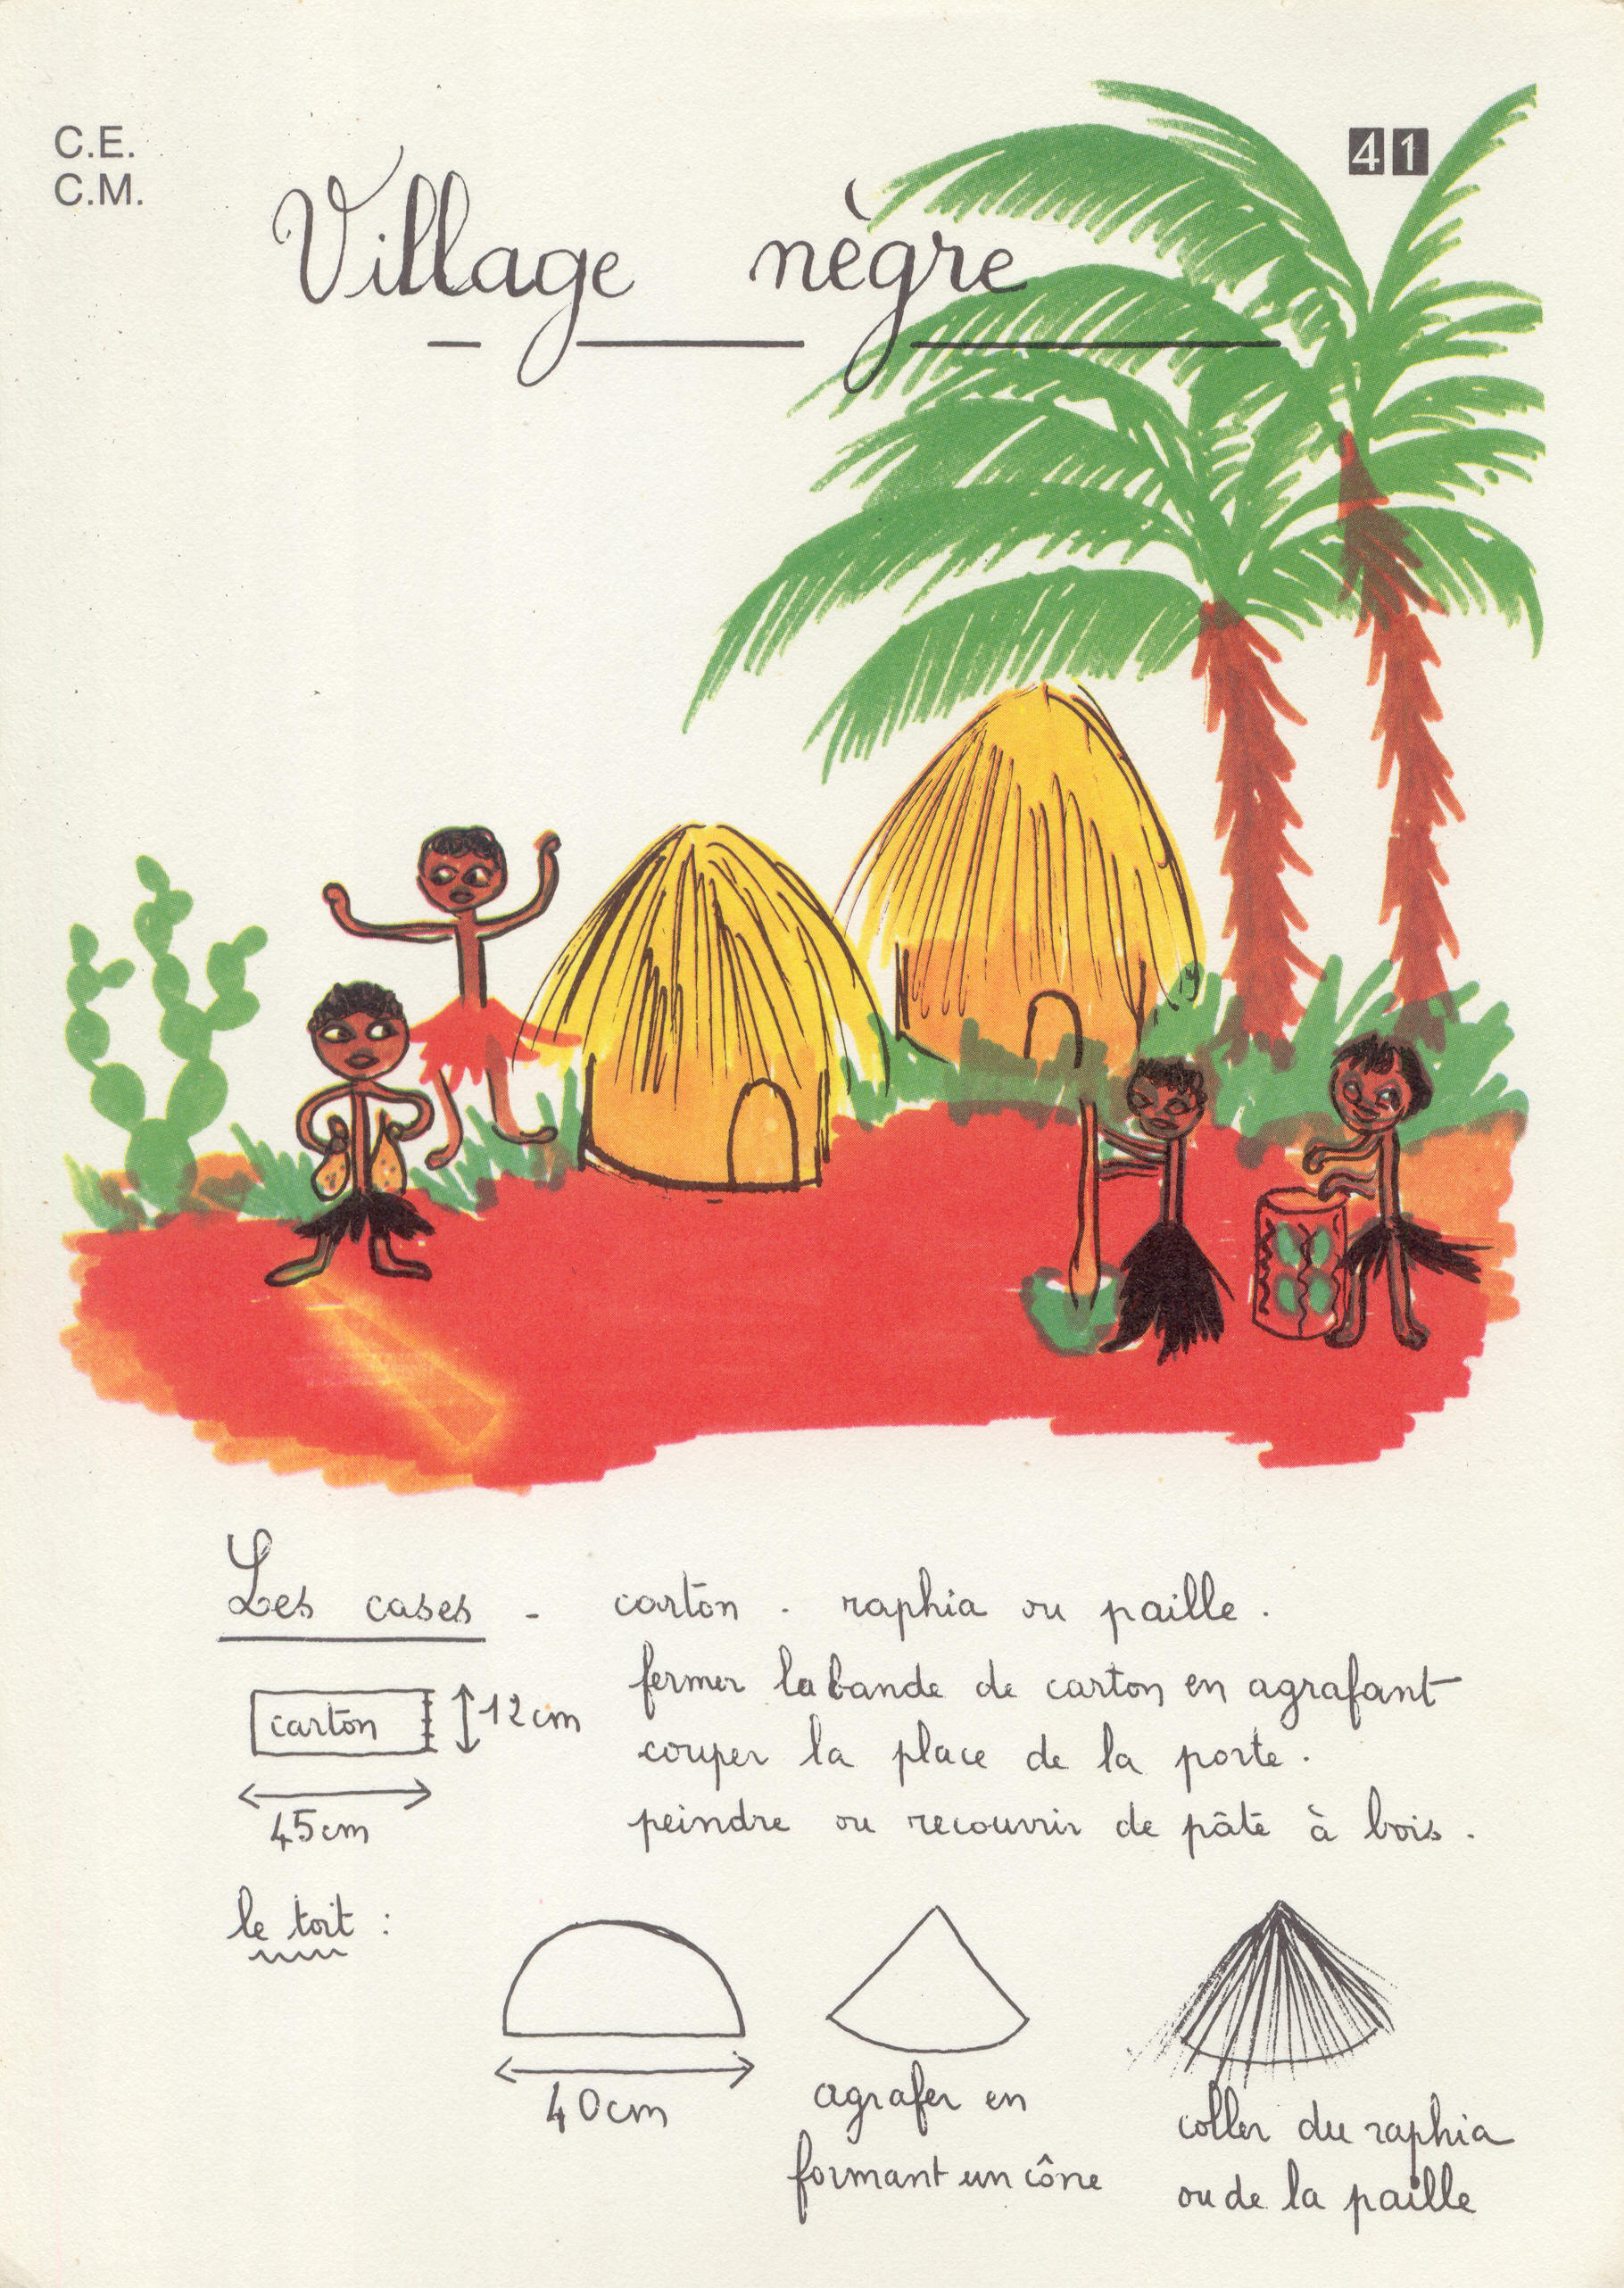 C.E.
C.M.
41
Village nègre
Les cases - carton - raphia ou paille.
fermer la bande de carton en agrafant
couper la place de la porte.
peindre ou recouvrir de pâte à bois.
carton
12cm
45cm
le toit :
40cm
agrafer en
formant un cône
coller du raphia
ou de la paille